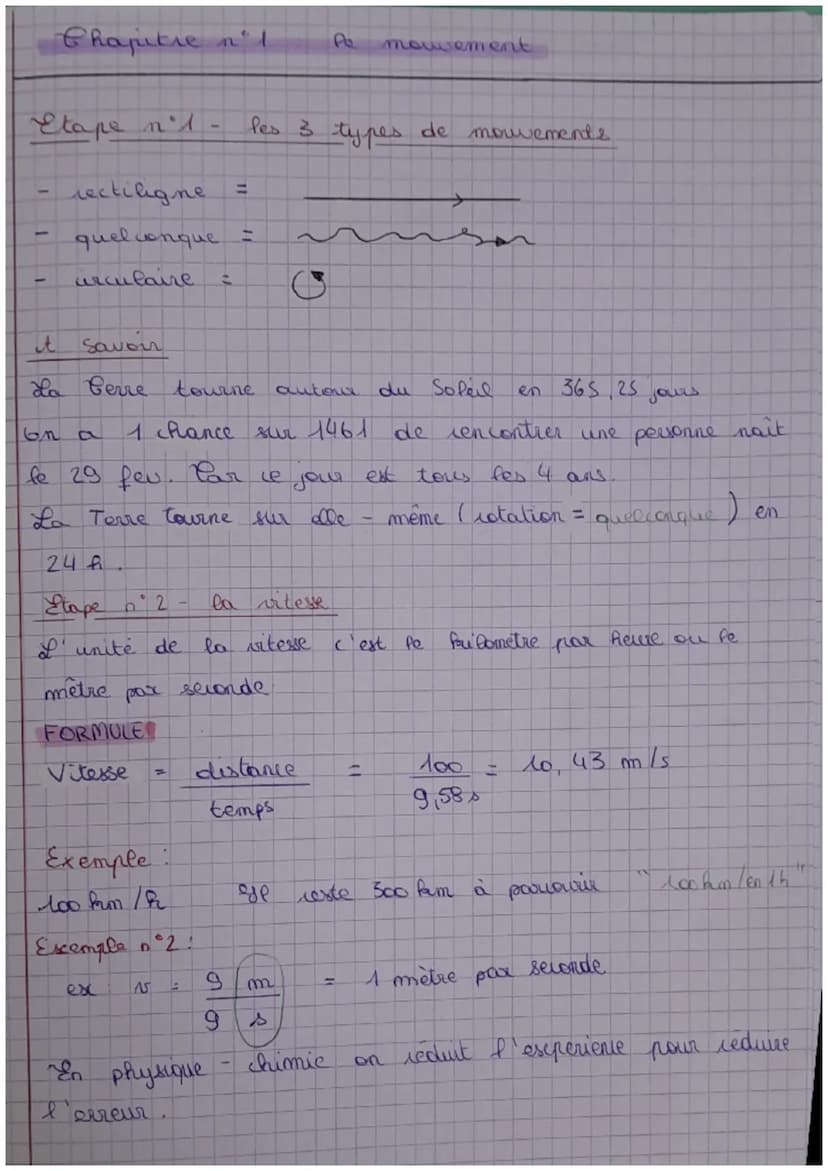 Chapitre n°1 Le mouvement
Etape n°1 - les 3 types de mouvements
- rectiligne =
- quelconque =
- circulaire =
A savoir
La Terre tourne autour du Soleil en 365,25 jours
On a 1 chance sur 1461 de rencontrer une personne nait
le 29 fev. Car ce jour est tous les 4 ans.
La Terre tourne sur elle-même (rotation = quelconque) en
24 h.
Etape n°2 - la vitesse
L'unité de la vitesse c'est le kilomètre par heure ou le
mètre par seconde
FORMULE
Vitesse = distance / temps = 100 / 9,58 s = 10,43 m/s
Exemple :
100 km/h Il reste 500 km à parcourir "100 km/en 1h"
Exemple n°2 :
ex v = 9 m / 9 s = 1 mètre par seconde
En physique-chimie on réduit l'experience pour réduire
l'erreur.